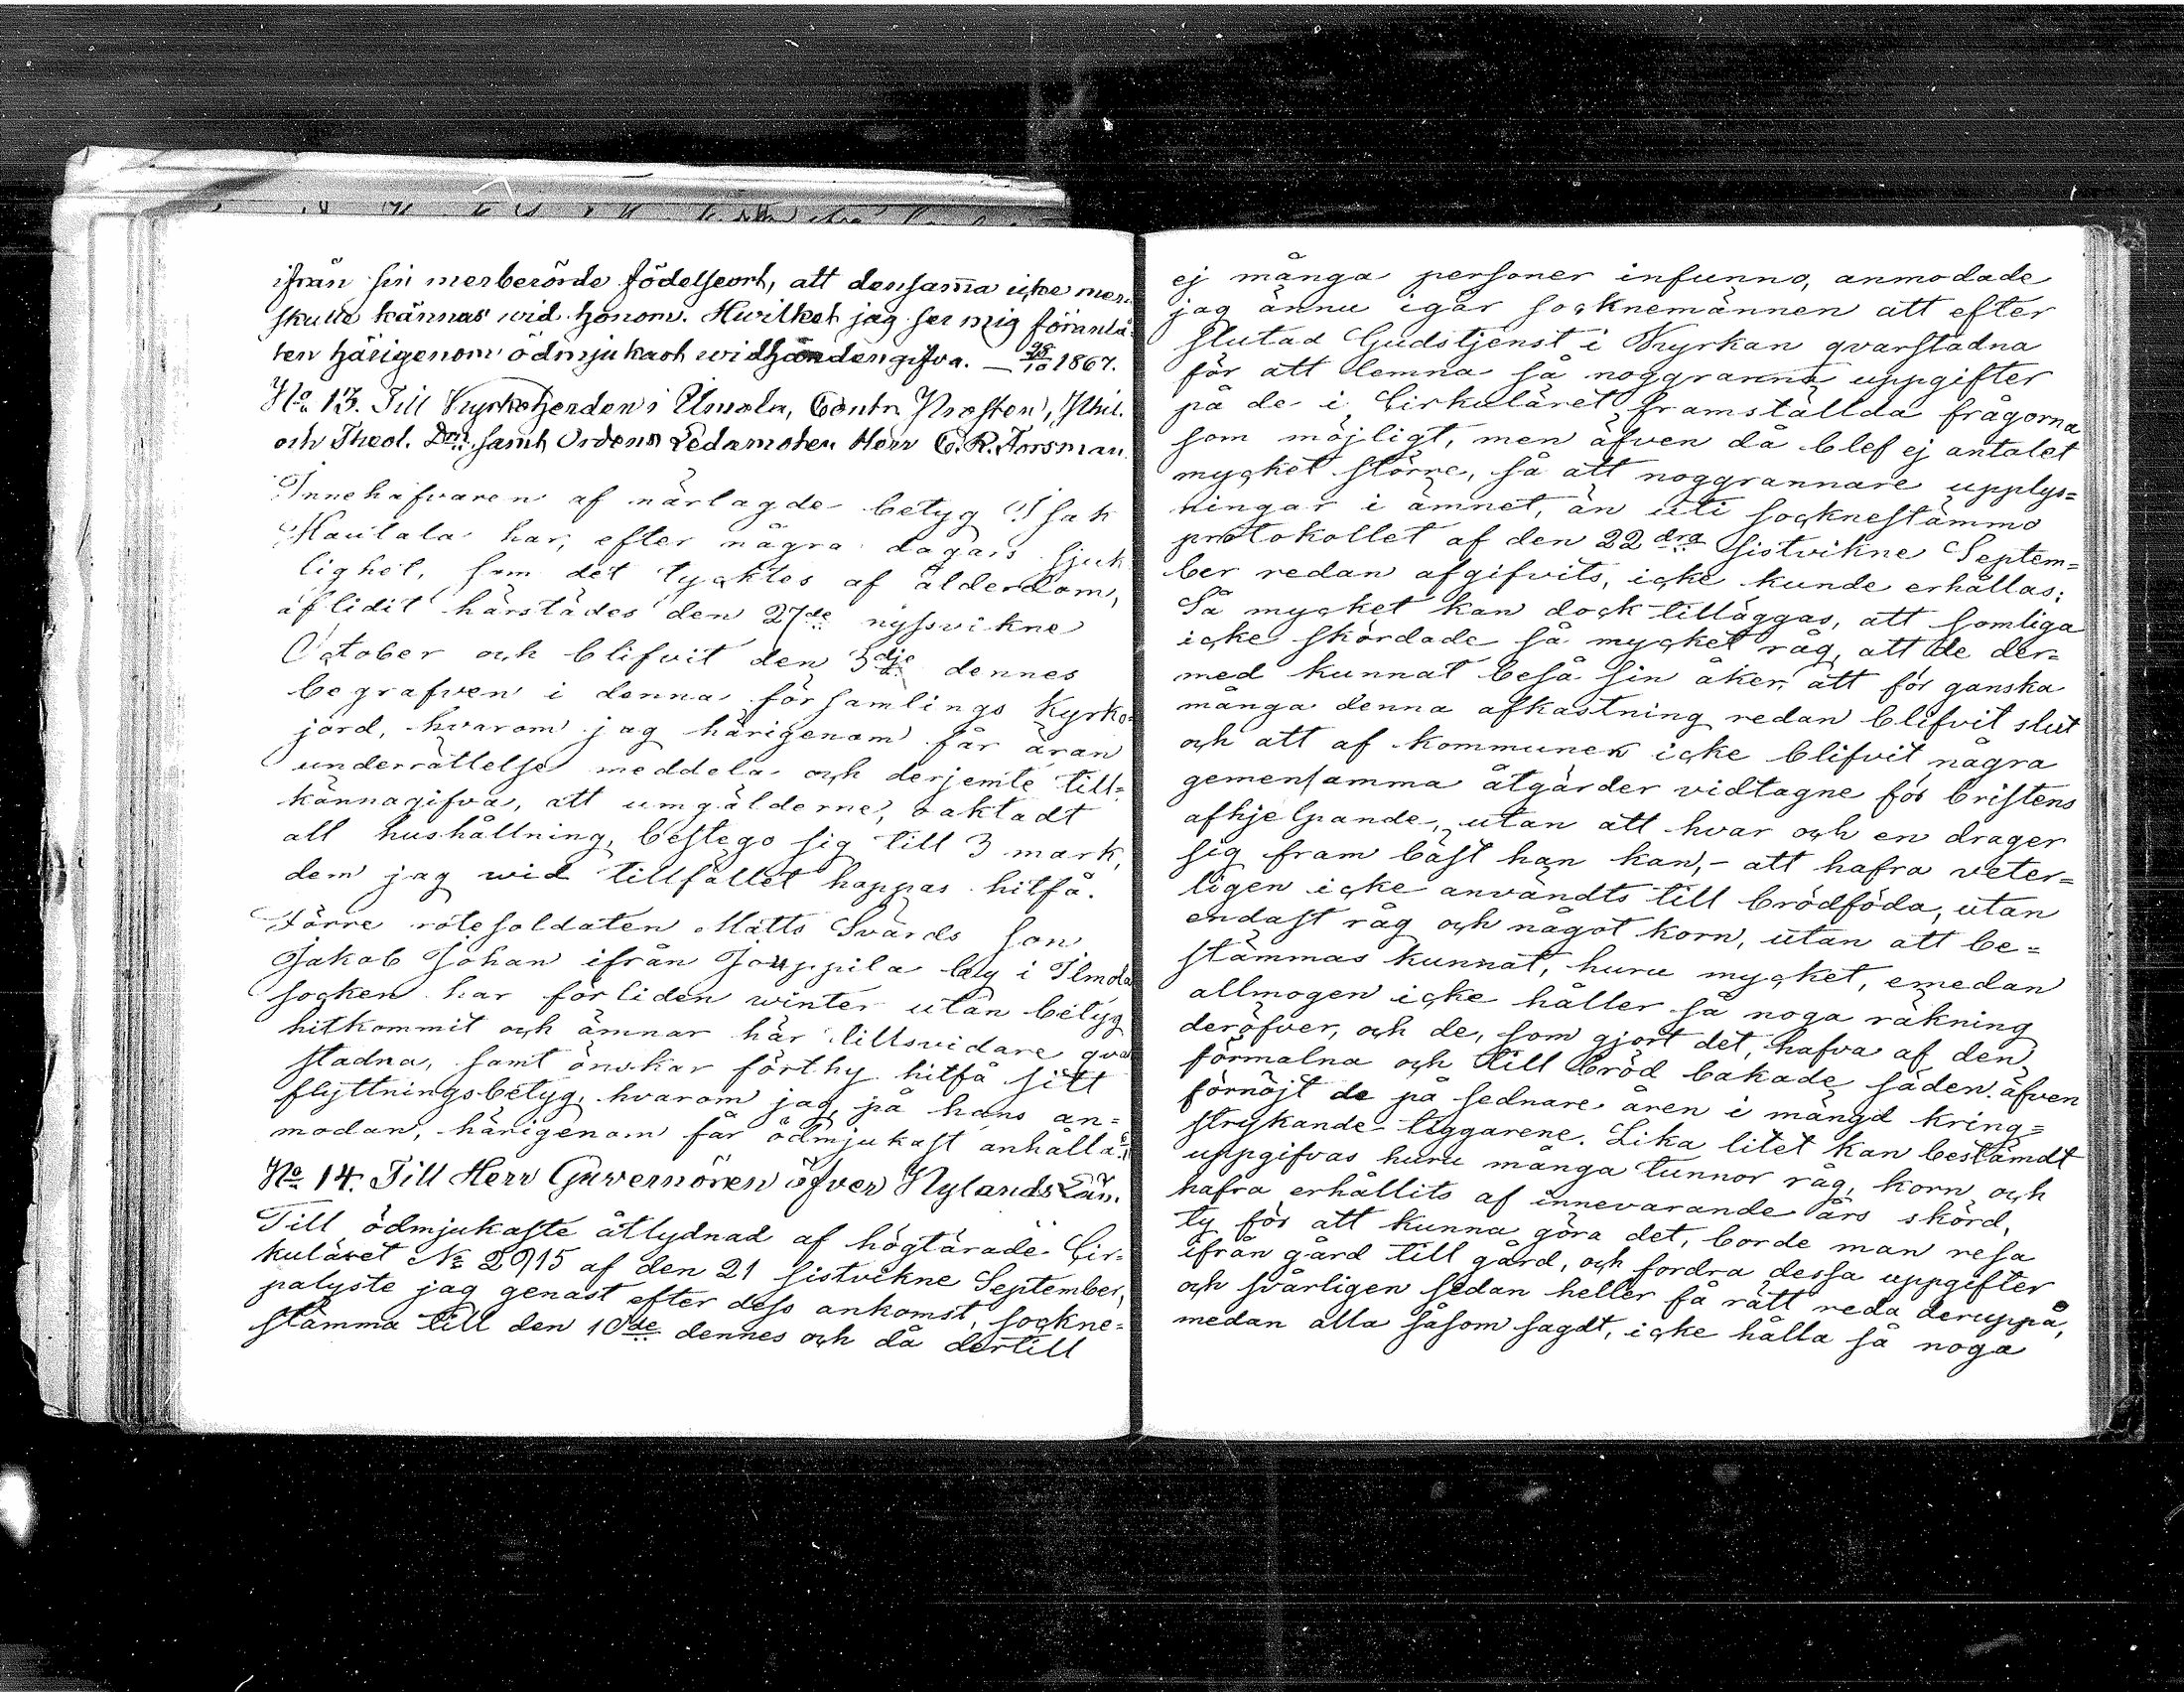 ifrån sin merberörde födelseort, att densam̄a icke mer
skulle kännas wid honom. Hwilket jag ser mig föranlå-
ten härigenom ödmjukast widhandengifva. — 28/10 1867.
No 13. Till Kyrkoherden i Ilmola, Contr. Prosten, Phil.
och Theol. Dr. samt Ordens Ledamoten Herr C. R. Forsman.
Innehafvaren af närlagde betyg Isak
Hautala har, efter några dagars sjuk
lighet, som det tycktes af ålderdom,
aflidit härstädes den 27de nyssvikne
October och blifvit den 3dje dennes
begrafven i denna församlings Kyrko-
jord, hvarom jag härigenom får äran
underrättelse meddela och derjemte till-
kännagifva, att umgälderne, oaktadt
all hushållning, bestego sig till 3 mark,
dem jag wid tillfället hoppas hitfå.
Förre rotesoldaten Matts Svärds son
Jakob Johan ifrån Jouppila by i Ilmola
socken har förliden winter utan betyg
hitkommit och ämnar här tillsvidare qvar
stadna, samt önskar förthy hitfå sitt
flyttningsbetyg, hvarom jag, på hans an-
modan, härigenom får ödmjukast anhålla.
No 14. Till Herr Guvernören öfver Nylands Län.
Till ödmjukaste åtlydnad af högtärade Cir-
kuläret No 2915 af den 21 sistvikne September,
pålyste jag genast efter dess ankomst, sockne-
stämma till den 10de dennes och då dertill
ej många personer infunno, anmodade
jag ännu igår socknemännen att efter
slutad Gudstjenst i Kyrkan qvarstadna
för att lemna så noggranna uppgifter
på de i Cirkuläret framställda frågorna
som möjligt, men äfven då blef ej antalet
mycket större, så att noggrannare upplys-
ningar i ämnet, än uti socknestämmo
protokollet af den 22dra sistvikne Septem-
ber redan afgifvits, icke kunde erhållas;
Så mycket kan dock tilläggas, att somliga
icke skördade så mycket råg, att de der-
med kunnat beså sin åker, att för ganska
många denna afkastning redan blifvit slut
och att af kommunen icke blifvit några
gemensamma åtgärder vidtagne för bristens
afhjelpande, utan att hvar och en drager
sig fram bäst han kan, - att hafra veter-
ligen icke användts till brödföda, utan
endast råg och något korn, utan att be-
stämmas kunnat, huru mycket, emedan
allmogen icke håller så noga räkning
deröfver, och de, som gjort det, hafva af den
förmalna och till bröd bakade säden äfven
förnöjt de på sednare åren i mängd kring-
strykande tiggarene. Lika litet kan bestämdt
uppgifvas huru många tunnor råg, korn och
hafra erhållits af innevarande års skörd,
ty för att kunna göra det, borde man resa
ifrån gård till gård, och fordra dessa uppgifter
och svårligen sedan heller få rätt reda deruppå,
medan alla såsom sagdt, icke hålla så noga